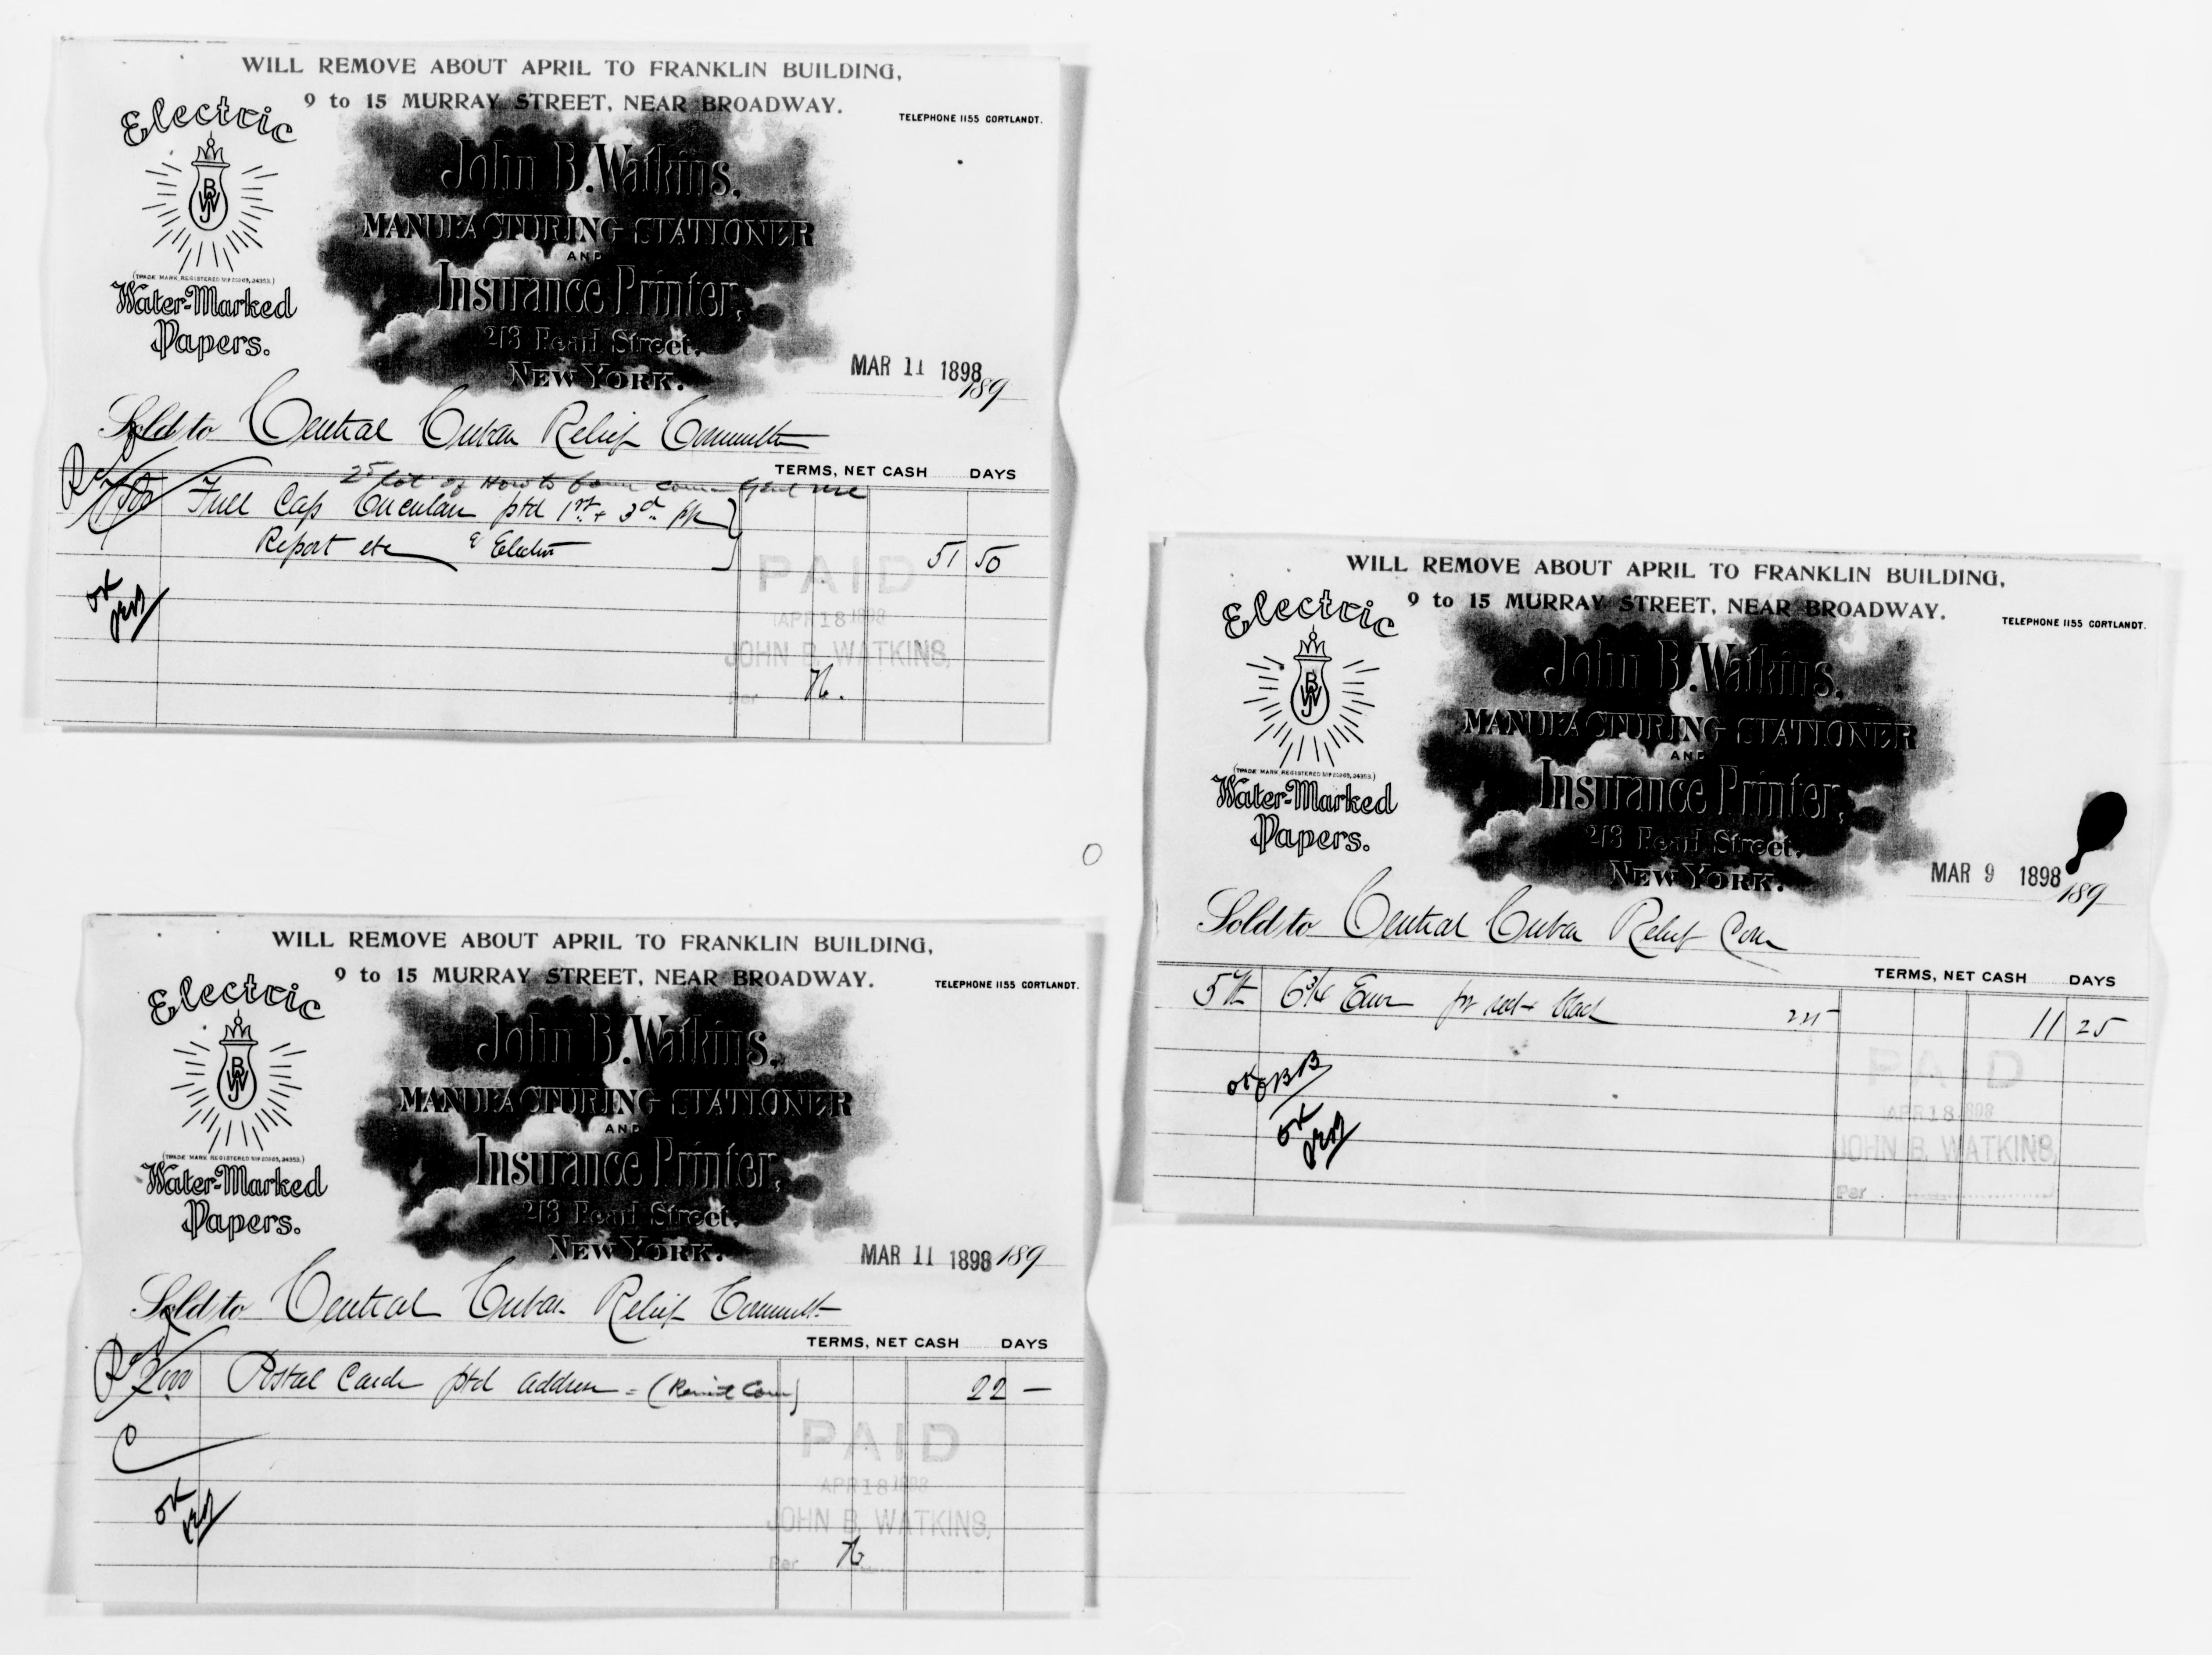 WILL REMOVE ABOUT APRIL TO FRANKLIN BUILDING,
9 to 15 MURRAY STREET, NEAR BROADWAY.
TELEPHONE 1155 CORTLANDT.
Electric
JBW
(TRADE MARK REGISTERED
Water-Marked
Papers.
John B. Watkins.
MANUFACTURING STATIONER
AND
Insurance Printer,
213 Pearl Street.
NEW YORK.
MAR 11 1898 189
Sold to Central Cuban Relief Committee
TERMS, NET CASH DAYS
25 lot of How to form
Full Cap Circulars ptd 1st + 3d pp
Report etc 51 50
OK
PAID
APR 18 1898
JOHN B. WATKINS,
Per
WILL REMOVE ABOUT APRIL TO FRANKLIN BUILDING,
9 to 15 MURRAY STREET, NEAR BROADWAY.
TELEPHONE 1155 CORTLANDT.
Electric
JBW
(TRADE MARK REGISTERED
Water-Marked
Papers.
John B. Watkins.
MANUFACTURING STATIONER
AND
Insurance Printer,
213 Pearl Street.
NEW YORK.
MAR 11 1898 189
Sold to Central Cuban Relief Committ
TERMS, NET CASH DAYS
2000 Postal Cards ptd address = 22 —
OK
PAID
APR 18 1898
JOHN B. WATKINS,
Per
WILL REMOVE ABOUT APRIL TO FRANKLIN BUILDING,
9 to 15 MURRAY STREET, NEAR BROADWAY.
TELEPHONE 1155 CORTLANDT.
Electric
JBW
(TRADE MARK REGISTERED
Water-Marked
Papers.
John B. Watkins.
MANUFACTURING STATIONER
AND
Insurance Printer,
213 Pearl Street.
NEW YORK.
MAR 9 1898 189
Sold to Central Cuban Relief Com
TERMS, NET CASH DAYS
5 M 6 3/4 Env red + black 225 11 25
OK
OK
PAID
APR 18 1898
JOHN B. WATKINS,
Per